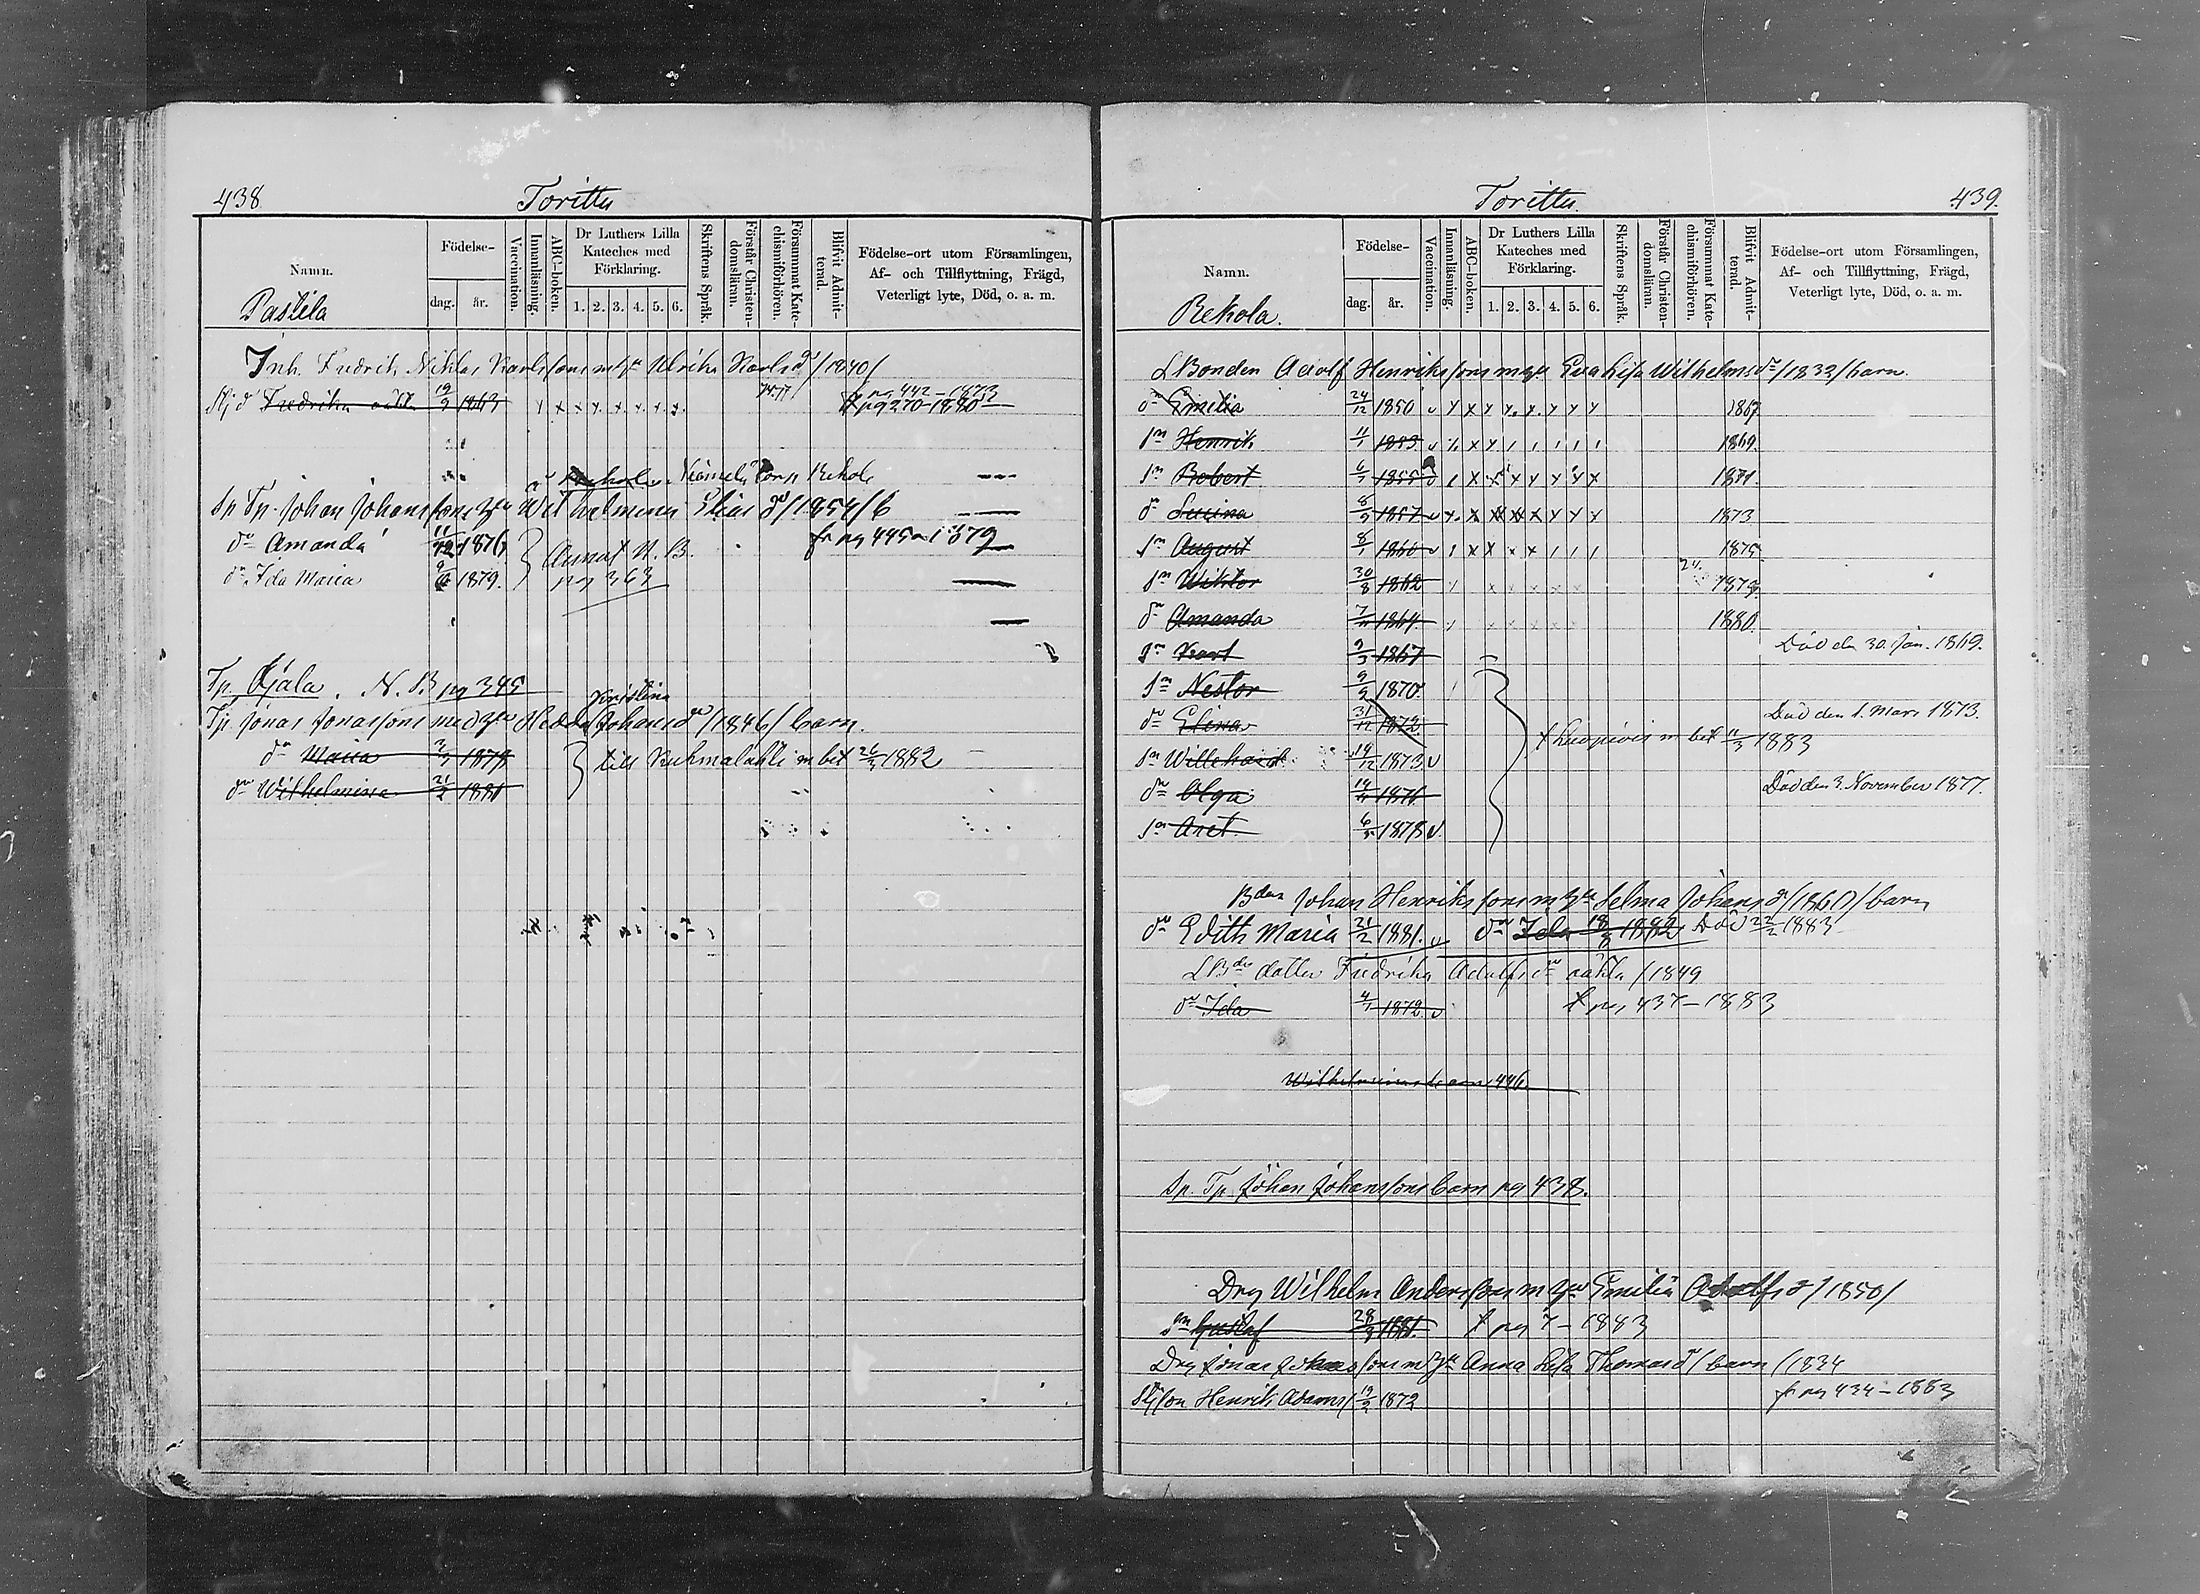 438. Torittu
Namn.
Födelse-
dag. år.
Vaccination.
Innanläsning.
ABC-boken.
Dr Luthers Lilla Kateches med Förklaring.
1. 2. 3. 4. 5. 6.
Skriftens Språk.
Förstår Christen-domsläran.
Försummat Kate-chismiförhören.
Blifvit Admit-terad.
Födelse-ort utom Församlingen, Af- och Tillflyttning, Frägd, Veterligt lyte, Död, o. a. m.
Pastila
Inh. Fredrik Niklas Karlssons m h u Ulrika Karlsd /1840/
Stjd Fredrika 19/9 1863 pg 442-1873
pg 270-1880
Torp Rekola
Sp Tp. Johan Johanssons hu Wilhelmina Eliasd /1854/ 6
dr Amanda 11/12 1876 } Annat N. B. fr pg 445 1879
dr Ida Maria 1879. } pg 363
Tp. Ojala. N. B pg 345
Kristina
Tp. Jonas Jonassons med hu Hedda Johansdr /1846/ barn.
dr Maria 1878 } till Kuhmalahti m bet 26/3 1882
dr Wilhelmina 21/2 1881
Torittu. 439.
Namn.
Födelse-
dag. år.
Vaccination.
Innanläsning.
ABC-boken.
Dr Luthers Lilla Kateches med Förklaring.
1. 2. 3. 4. 5. 6.
Skriftens Språk.
Förstår Christen-domsläran.
Försummat Kate-chismiförhören.
Blifvit Admit-terad.
Födelse-ort utom Församlingen, Af- och Tillflyttning, Frägd, Veterligt lyte, Död, o. a. m.
Rekola.
LBonden Adolf Henrikssons m hu Eva Lisa Wilhelmsdr /1833/ barn.
dr Emilia 24/12 1850 1867
sn Henrik 11/1 1853 1869.
sn Robert 6/7 1855 1871.
dr Lucina 8/9 1857 1873
sn August 8/1 1860 1875.
sn Wiktor 30/8 1862 1879.
dr Amanda 1864 1880.
sn Karl 9/3 1867 Död den 30. Jan. 1869.
sn Nestor 9/2 1870.
dr Elina 31/12 1872 Död den 1. Mars 1873.
sn Willehard 14/12 1873 m bet 11/3 1883
dr Olga 1876 Död den 3. November 1877.
sn Axel 1878
Bden Johan Henrikssons m hu Selma Johansd /1860/ barn
dr Edith Maria 21/2 1881. dr Ida 18/8 1882 Död 22/2 1883
LBds dotter Fredrika Adolfsdr /1849
dr Ida 4/1 1872 pg 437-1883
Wilhelmina barn 446.
Sp. Tp. Johan Johanssons barn pg 438.
Drg Wilhelm Anderssons m hu Emilia Adolfsd /1850/
sn Gustaf 28/9 1881. pg 7-1883
Drg Jonas Johanssons m hu Anna Lisa Thomasd / barn /1834
Stjson Henrik Adams/ 19/2 1872 fr pg 434-1883